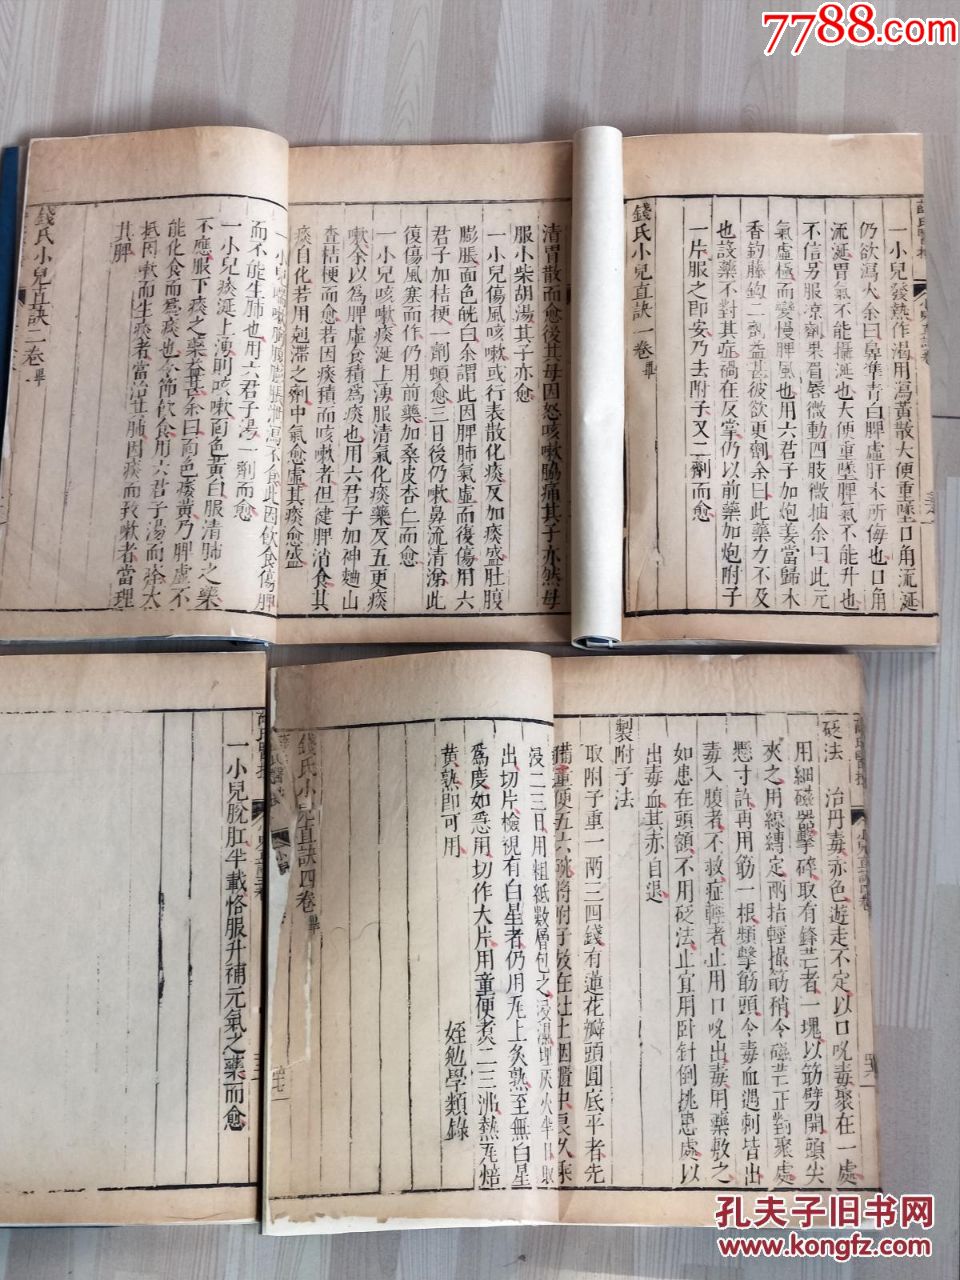 7788.com
一小兒發熱作渴用瀉黃散大便重墜口角流涎
仍欲瀉火余曰鼻準青白脾虛肝木所侮也口角
流涎胃氣不能攝涎也大便重墜脾氣不能升也
不信另服凉劑果眉唇微動四肢微抽余曰此元
氣虛極而變慢脾風也用六君子加炮姜當歸木
香鈎藤鈎二劑益甚彼欲更劑余曰此藥力不及
也設藥不對其症禍在反掌仍以前藥加炮附子
一片服之即安乃去附子又二劑而愈
錢氏小兒直訣一卷畢
清胃散而愈後其母因怒咳嗽脇痛其子亦然母
服小柴胡湯其子亦愈
一小兒傷風咳嗽或行表散化痰反加痰盛肚腹
膨脹面色㿠白余謂此因脾肺氣虛而復傷用六
君子加桔梗一劑頓愈三日後仍嗽鼻流清涕此
復傷風塞而作仍用前藥加桑皮杏仁而愈
一小兒咳嗽痰涎上湧服清氣化痰藥反五更痰
嗽余以為脾虛食積為痰也用六君子加神麯山
查桔梗而愈若因痰積而咳嗽者但健脾消食其
痰自化若用剋滯之劑中氣愈虛其痰愈盛
食此因飲食傷脾
而不能生肺也用六君子湯一劑而愈
一小兒痰涎上湧則咳嗽面色黃白服清肺之藥
不應服下痰之藥益甚余曰面色痿黃乃脾虛不
能化食而為痰也令節飲食用六君子湯而痊大
抵因嗽而生痰者當治其肺因痰而致嗽者當理
其脾
錢氏小兒直訣一卷畢
砭法　治丹毒赤色遊走不定以口吮毒聚在一處
用細磁器擊碎取有鋒芒者一塊以筯劈開頭尖
夾之用線縛定兩指輕撮筯稍令磁芒正對聚處
懸寸許再用筯一根頻擊筯頭令毒血遇刺皆出
毒入腹者不救症輕者止用口吮出毒用藥敷之
如患在頭額不用砭法止宜用卧針倒挑患處以
出毒血其赤自退
製附子法
取附子重一兩三四錢有蓮花瓣頭圓底平者先
備童便五六碗將附子放在灶上烟櫃中良久乘
浸二三日用粗紙數層包之浸濕埋灰火半日取
出切片檢視有白星者仍用瓦上炙熟至無白星
為度如急用切作大片用童便煮二三沸熱瓦焙
黃熟即可用
姪勉學類錄
錢氏小兒直訣四卷畢
一小兒脫肛半載恪服升補元氣之藥而愈
孔夫子旧书网
www.kongfz.com